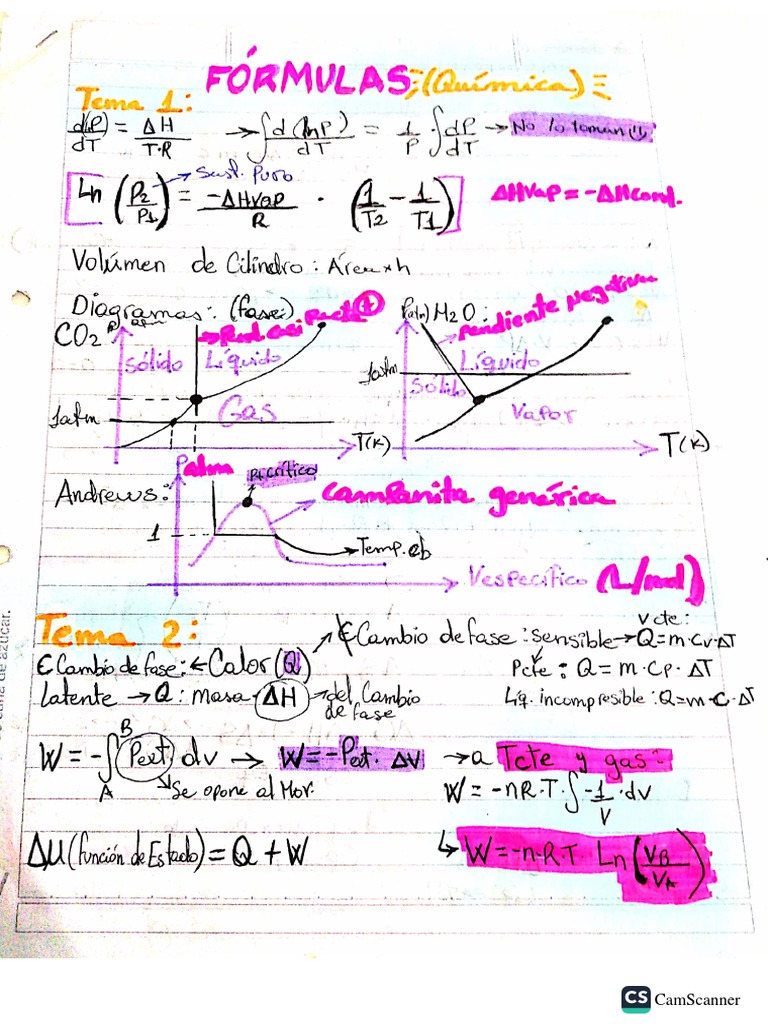 FÓRMULAS (Química)
Tema 1:
dlP/dT = ΔH/T·R → ∫d(lnP)/dT = 1/P · ∫dP/dT → No lo toman
Ln (P2/P1) = -ΔHvap/R · (1/T2 - 1/T1) ΔHvap = -ΔHcond.
→ Sust. Puro
Volúmen de Cilindro: Área x h
Diagramas: (fase)
CO2: P atm
→ Pend. casi recta (+)
Sólido Líquido
Gas
1atm
T(K)
P(atm) H2O: pendiente negativa
Líquido
1atm
Sólido
Vapor
T(K)
Andrews:
Patm
Pt. crítico
campanita genérica
1
Temp. eb
Vespecífico (L/mol)
Tema 2:
∉ Cambio de fase: sensible → Vcte: Q = m·Cv·ΔT
∈ Cambio de fase: ← Calor (Q)
Pcte: Q = m·Cp·ΔT
Latente → Q: masa·ΔH → del Cambio de fase
Líq. incompresible: Q=m·C·ΔT
W = -∫ Pext dv → W = -Pext· ΔV → a Tcte y gas:
B
A
Se opone al Mov.
W = -nR·T·∫-1/V·dv
ΔU (función de Estado) = Q + W
↳ W = -n·R·T· Ln (VB/VA)
ana de azúcar.
CS CamScanner